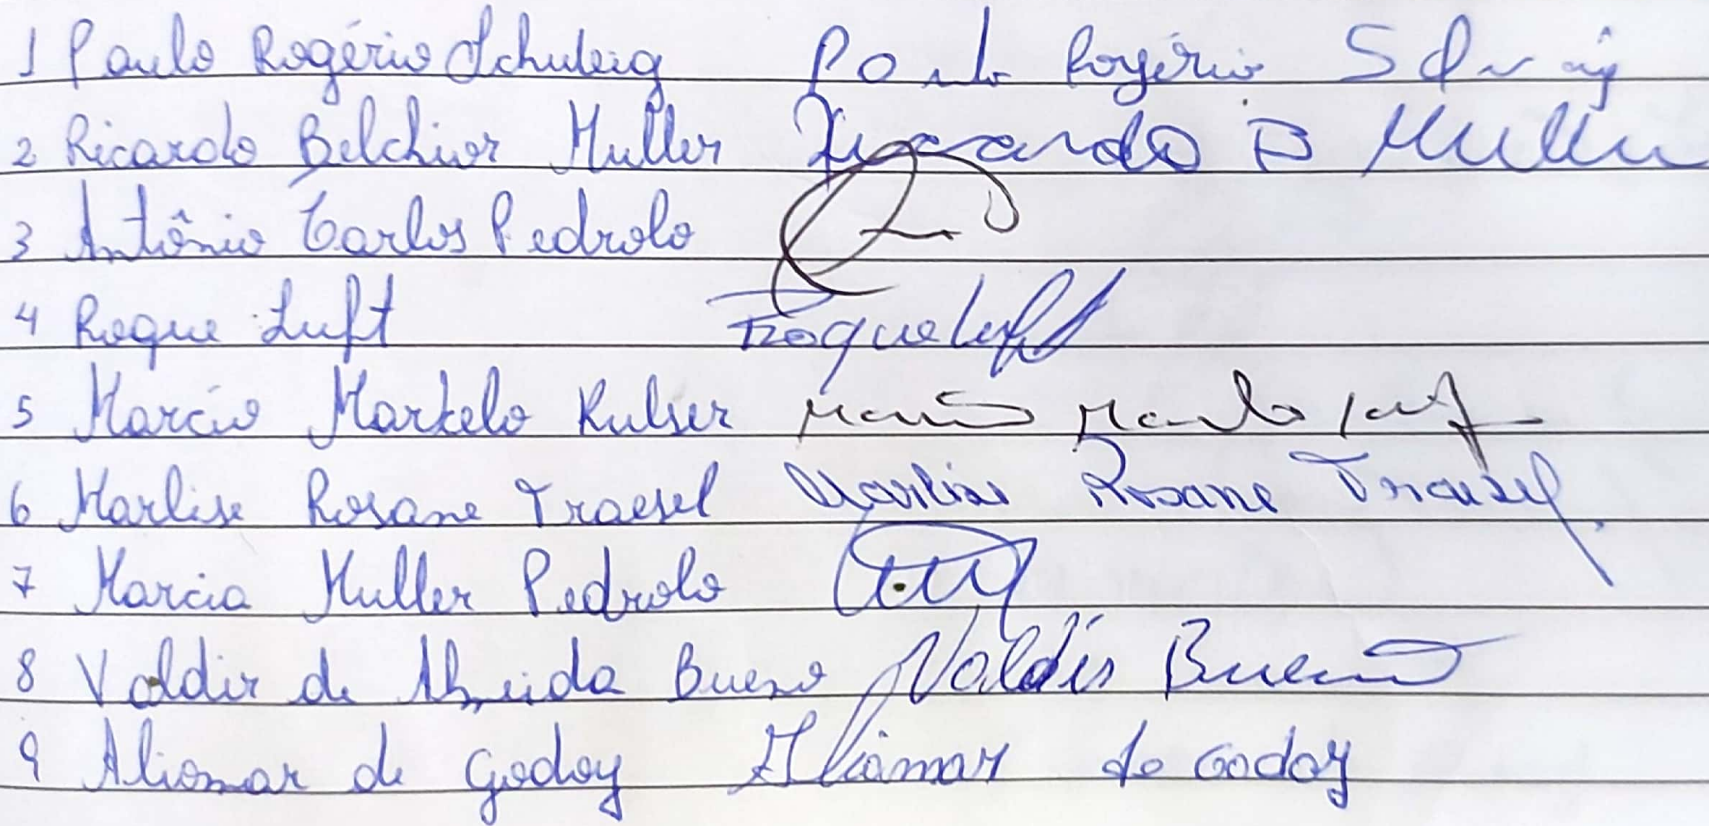 1 Paulo Rogério Schuleig Paulo Rogério
2 Ricardo Belchior Muller Ricardo B Muller
3 Antônio Carlos Pedrolo
4 Roque Luft Roque Luft
5 Marcio Markelo Kulser
6 Marlise Rosane Traesel Marlise Rosane Traesel
7 Marcia Muller Pedrolo
8 Valdir de Almeida Bueno Valdir Bueno
9 Aliomar de Godoy Aliomar de Godoy